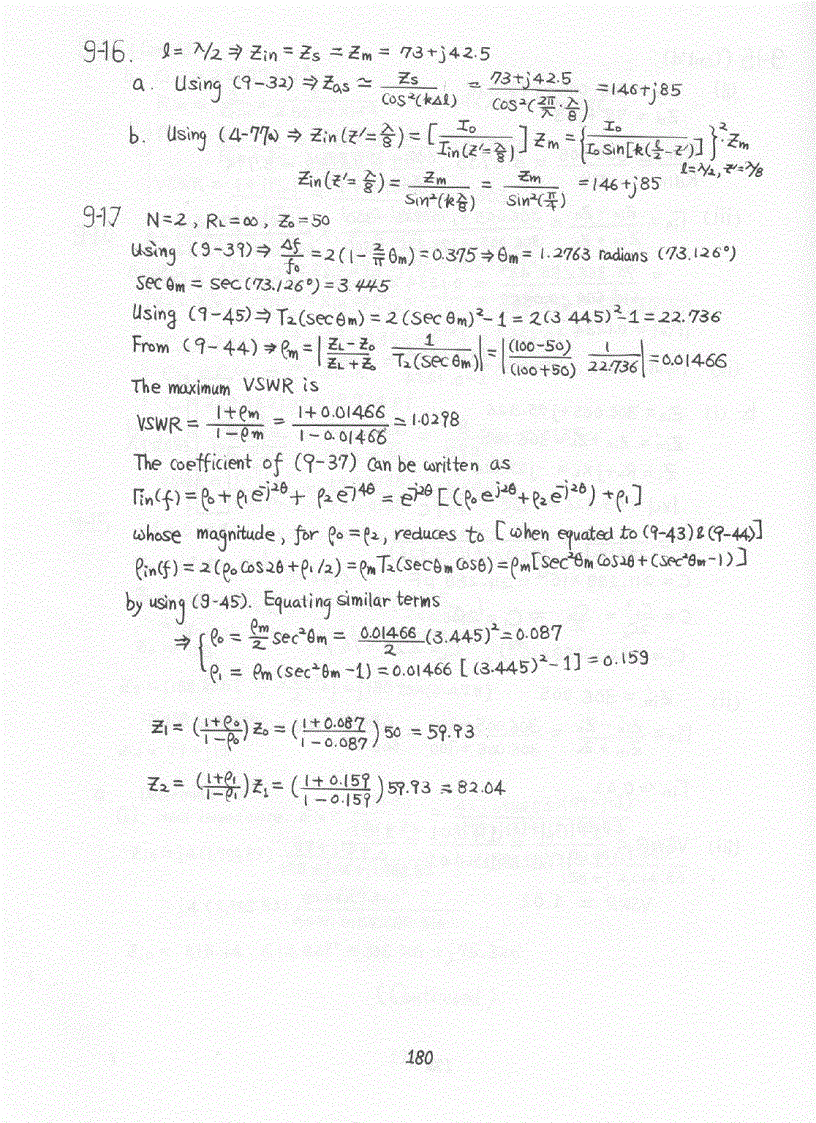 9-16. l = λ/2 ⇒ Zin = Zs = Zm = 73+j42.5
a. Using (9-32) ⇒ Zas ≃ Zs / cos²(kΔl) = 73+j42.5 / cos²(2π/λ · λ/8) = 146+j85
b. Using (4-77a) ⇒ Zin(z'=λ/8) = [Io / Iin(z'=λ/8)] Zm = {Io / Io Sin[k(l/2 - z')]}² · Zm l=λ/2, z'=λ/8
Zin(z'=λ/8) = Zm / Sin²(kλ/8) = Zm / Sin²(π/4) = 146+j85
9-17 N=2, RL=∞, Zo=50
Using (9-39) ⇒ Δf/fo = 2(1 - 2/π θm) = 0.375 ⇒ θm = 1.2763 radians (73.126°)
Sec θm = sec(73.126°) = 3 445
Using (9-45) ⇒ T2(secθm) = 2(sec θm)² - 1 = 2(3 445)² - 1 = 22.736
From (9-44) ⇒ ρm = |ZL-Zo / ZL+Zo 1 / T2(secθm)| = |(100-50) / (100+50) 1 / 22.736| = 0.01466
The maximum VSWR is
VSWR = 1+ρm / 1-ρm = 1+0.01466 / 1-0.01466 = 1.0298
The coefficient of (9-37) can be written as
Γin(f) = ρo + ρ1 e^-j2θ + ρ2 e^-j4θ = e^-j2θ [(ρo e^j2θ + ρ2 e^-j2θ) + ρ1]
whose magnitude, for ρo = ρ2, reduces to [when equated to (9-43) & (9-44)]
ρin(f) = 2(ρo cos2θ + ρ1/2) = ρm T2(secθm cosθ) = ρm[sec²θm cos2θ + (sec²θm - 1)]
by using (9-45). Equating similar terms
⇒ { ρo = ρm/2 sec²θm = 0.01466/2 (3.445)² = 0.087
ρ1 = ρm (sec²θm - 1) = 0.01466 [(3.445)² - 1] = 0.159
Z1 = (1+ρo / 1-ρo) Zo = (1+0.087 / 1-0.087) 50 = 59.93
Z2 = (1+ρ1 / 1-ρ1) Z1 = (1+0.159 / 1-0.159) 59.93 = 82.04
180